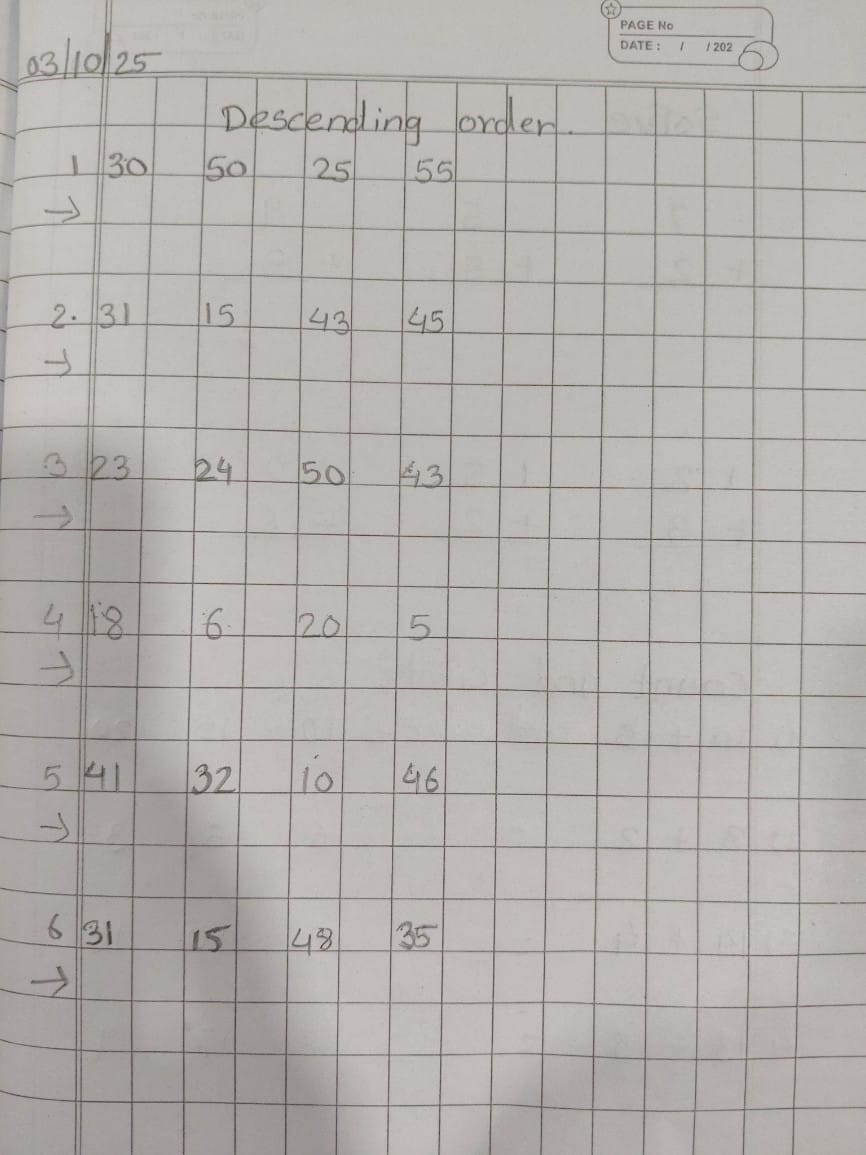 PAGE No
DATE: / / 202 5
03/10/25
Descending order.
1 30 50 25 55
→
2. 31 15 43 45
→
3 23 24 50 43
→
4 18 6 20 5
→
5 41 32 10 46
→
6 31 15 48 35
→